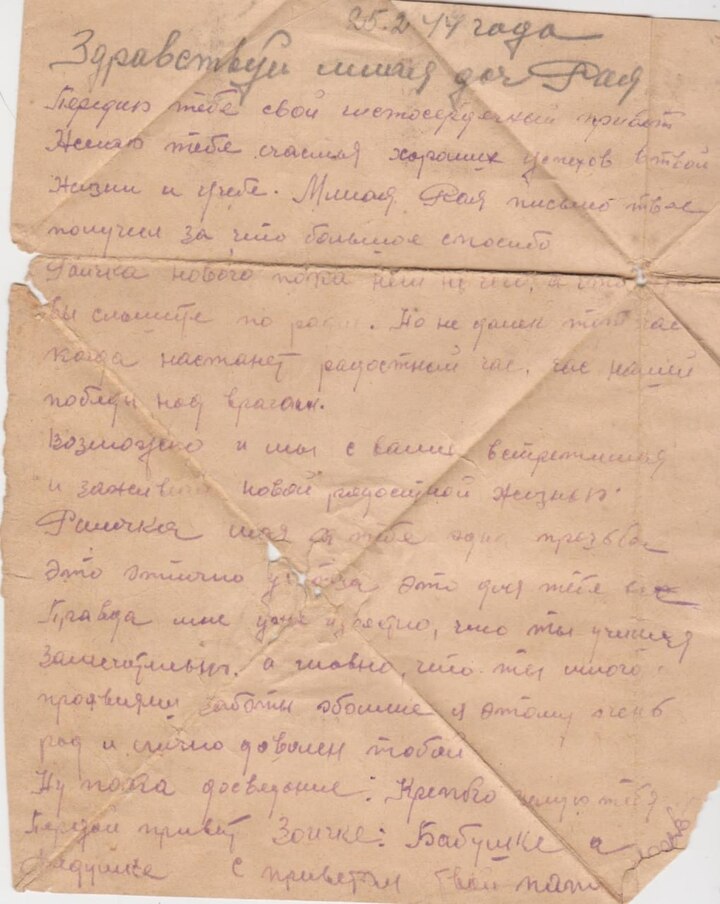 25.2 44 года
Здравствуй милая доч Рая
Передаю тебе свой чистосердечный привет
Желаю тебе счастья хороших успехов в твоей
жизни и учебе. Милая Рая письмо твое
получил за что большое спосибо
Раичка нового пока нет не чего, а что
вы слышите по радио. Но не далек тот час
когда настанет радостный час, час нашей
победы над врагом.
Возможно и мы с вами встретимся
и заживем новой радостной жизнью.
Раичка моя к тебе одна прозьба
это отлично это для тебя все
Правда мне уже известно, что ты учишся
замечательно, а главно, что ты много
проявияш заботы обомне я этому очень
рад и лично доволен тобой
Ну пока досведание: Крепко целую тебя
Передай привет Зоичке: Бабушке и
Дедушке с приветом твой папа